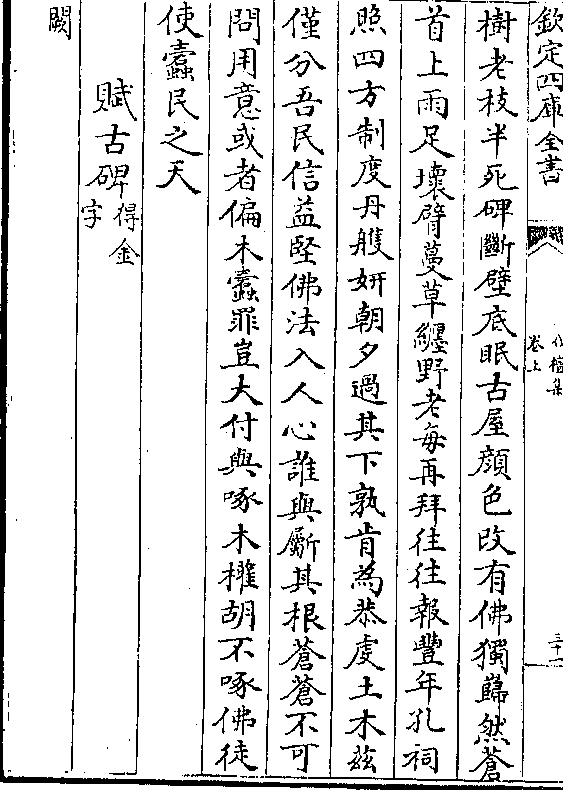 欽定四庫全書
卷上
三十一
樹老枝半死碑斷壁底眠古屋顔色改有佛獨巋然蒼
首上雨足壞臂蔓草纏野老每再拜往往報豐年孔祠
照四方制度丹雘妍朝夕過其下孰肯為恭虔土木兹
僅分吾民信益堅佛法入人心誰與斸其根蒼蒼不可
問用意或者偏木蠧罪豈大付與啄木權胡不啄佛徒
使蠧民之天
賦古碑得金字
闕